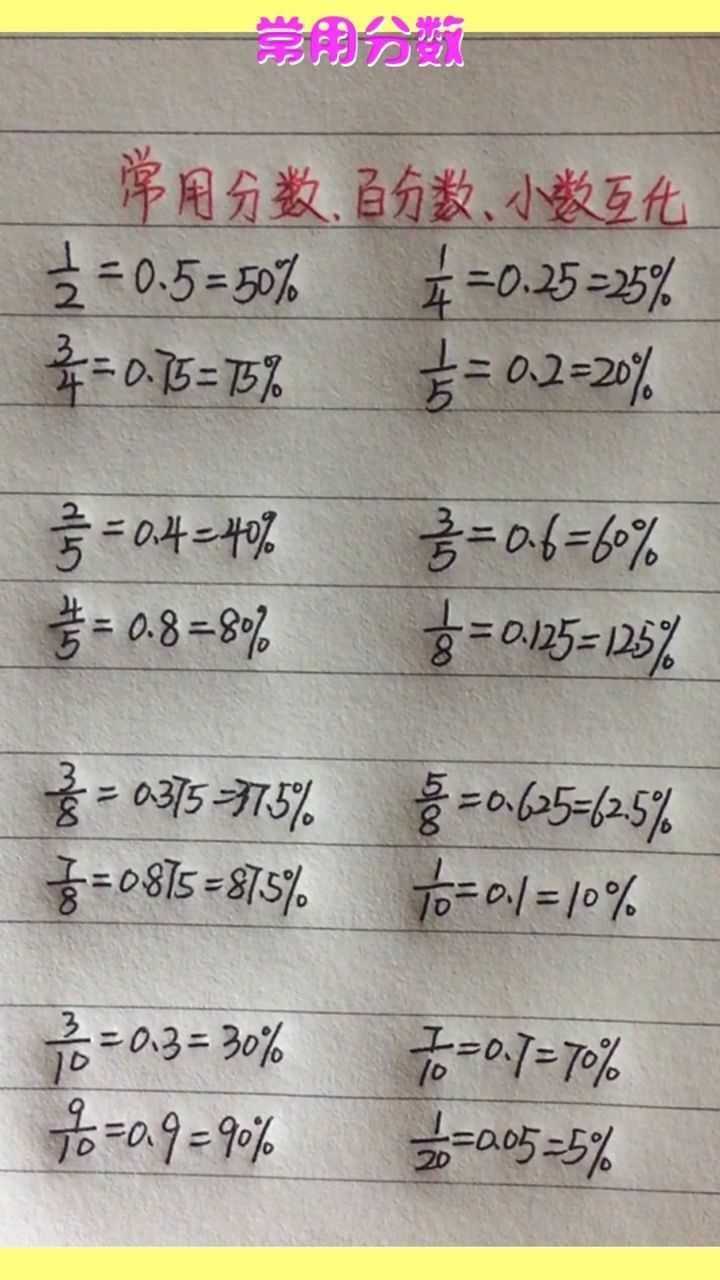 常用分数
常用分数、百分数、小数互化
1/2 = 0.5 = 50% 1/4 = 0.25 = 25%
3/4 = 0.75 = 75% 1/5 = 0.2 = 20%
2/5 = 0.4 = 40% 3/5 = 0.6 = 60%
4/5 = 0.8 = 80% 1/8 = 0.125 = 12.5%
3/8 = 0.375 = 37.5% 5/8 = 0.625 = 62.5%
7/8 = 0.875 = 87.5% 1/10 = 0.1 = 10%
3/10 = 0.3 = 30% 7/10 = 0.7 = 70%
9/10 = 0.9 = 90% 1/20 = 0.05 = 5%